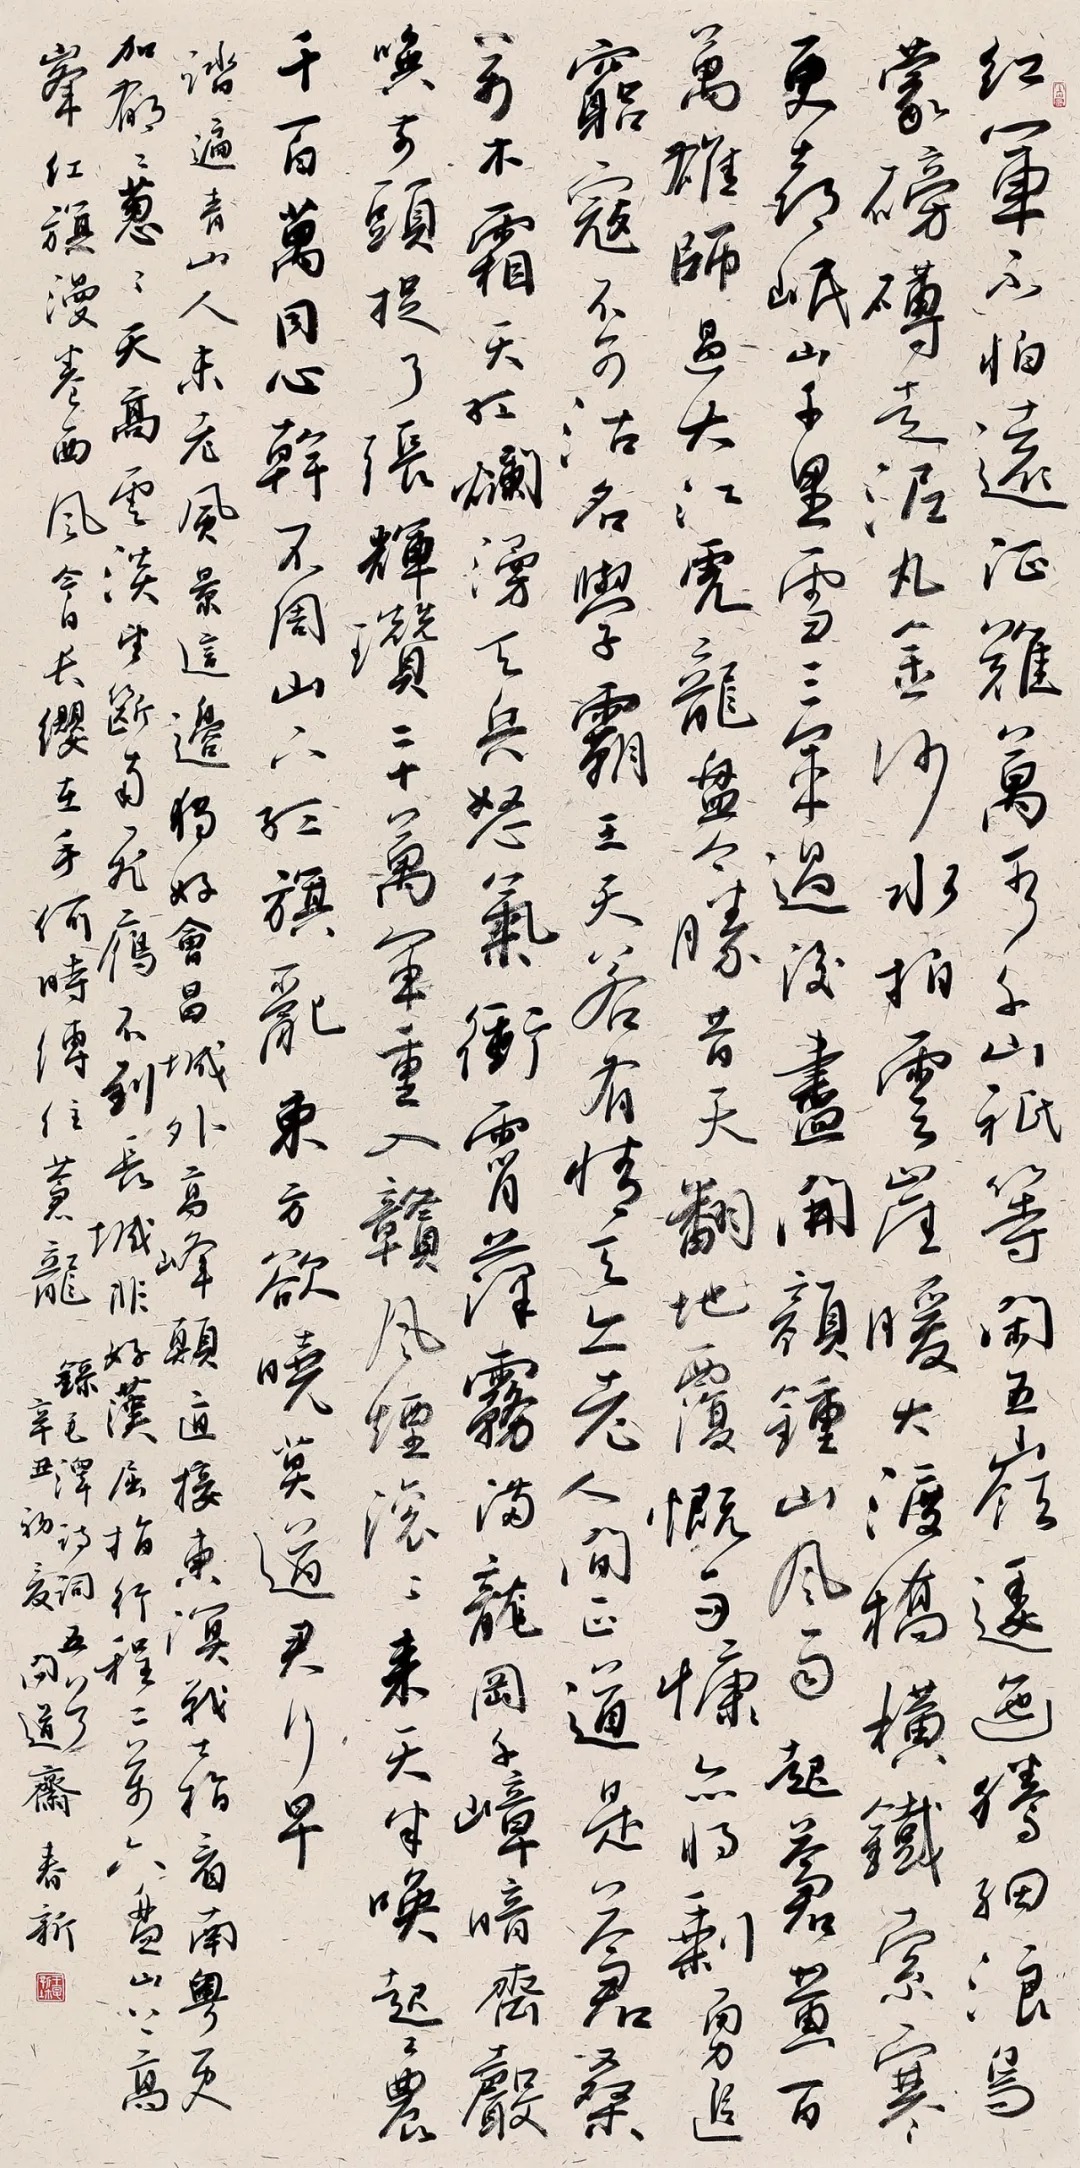 红軍不怕遠征難萬水千山祇等閑五嶺逶迤騰細浪烏
蒙磅礴走泥丸金沙水拍雲崖暖大渡橋橫鐵索寒
更喜岷山千里雪三軍過後盡開顏鍾山風雨起蒼黄百
萬雄師過大江虎龍盤今勝昔天翻地覆慨而慷宜将剩勇追
窮寇不可沽名學霸王天若有情天亦老人間正道是蒼桑
萬木霜天红爛漫天兵怒氣衝霄漢霧滿龍岡千嶂暗齊聲
喚前頭捉了張輝瓚二十萬軍重入贛風煙滾〻來天半喚起工農
千百萬同心幹不周山下红旗亂東方欲曉莫道君行早
踏遍青山人未老風景這邊獨好會昌城外高峰顛直接東溟戰士指看南粤更
加鬱〻蔥〻天高雲淡望斷南飛雁不到長城非好漢屈指行程二萬六盤山上高
峯红旗漫卷西風今日長纓在手何時縛住蒼龍
錄毛澤诗詞五
辛丑初夏問道齋春新